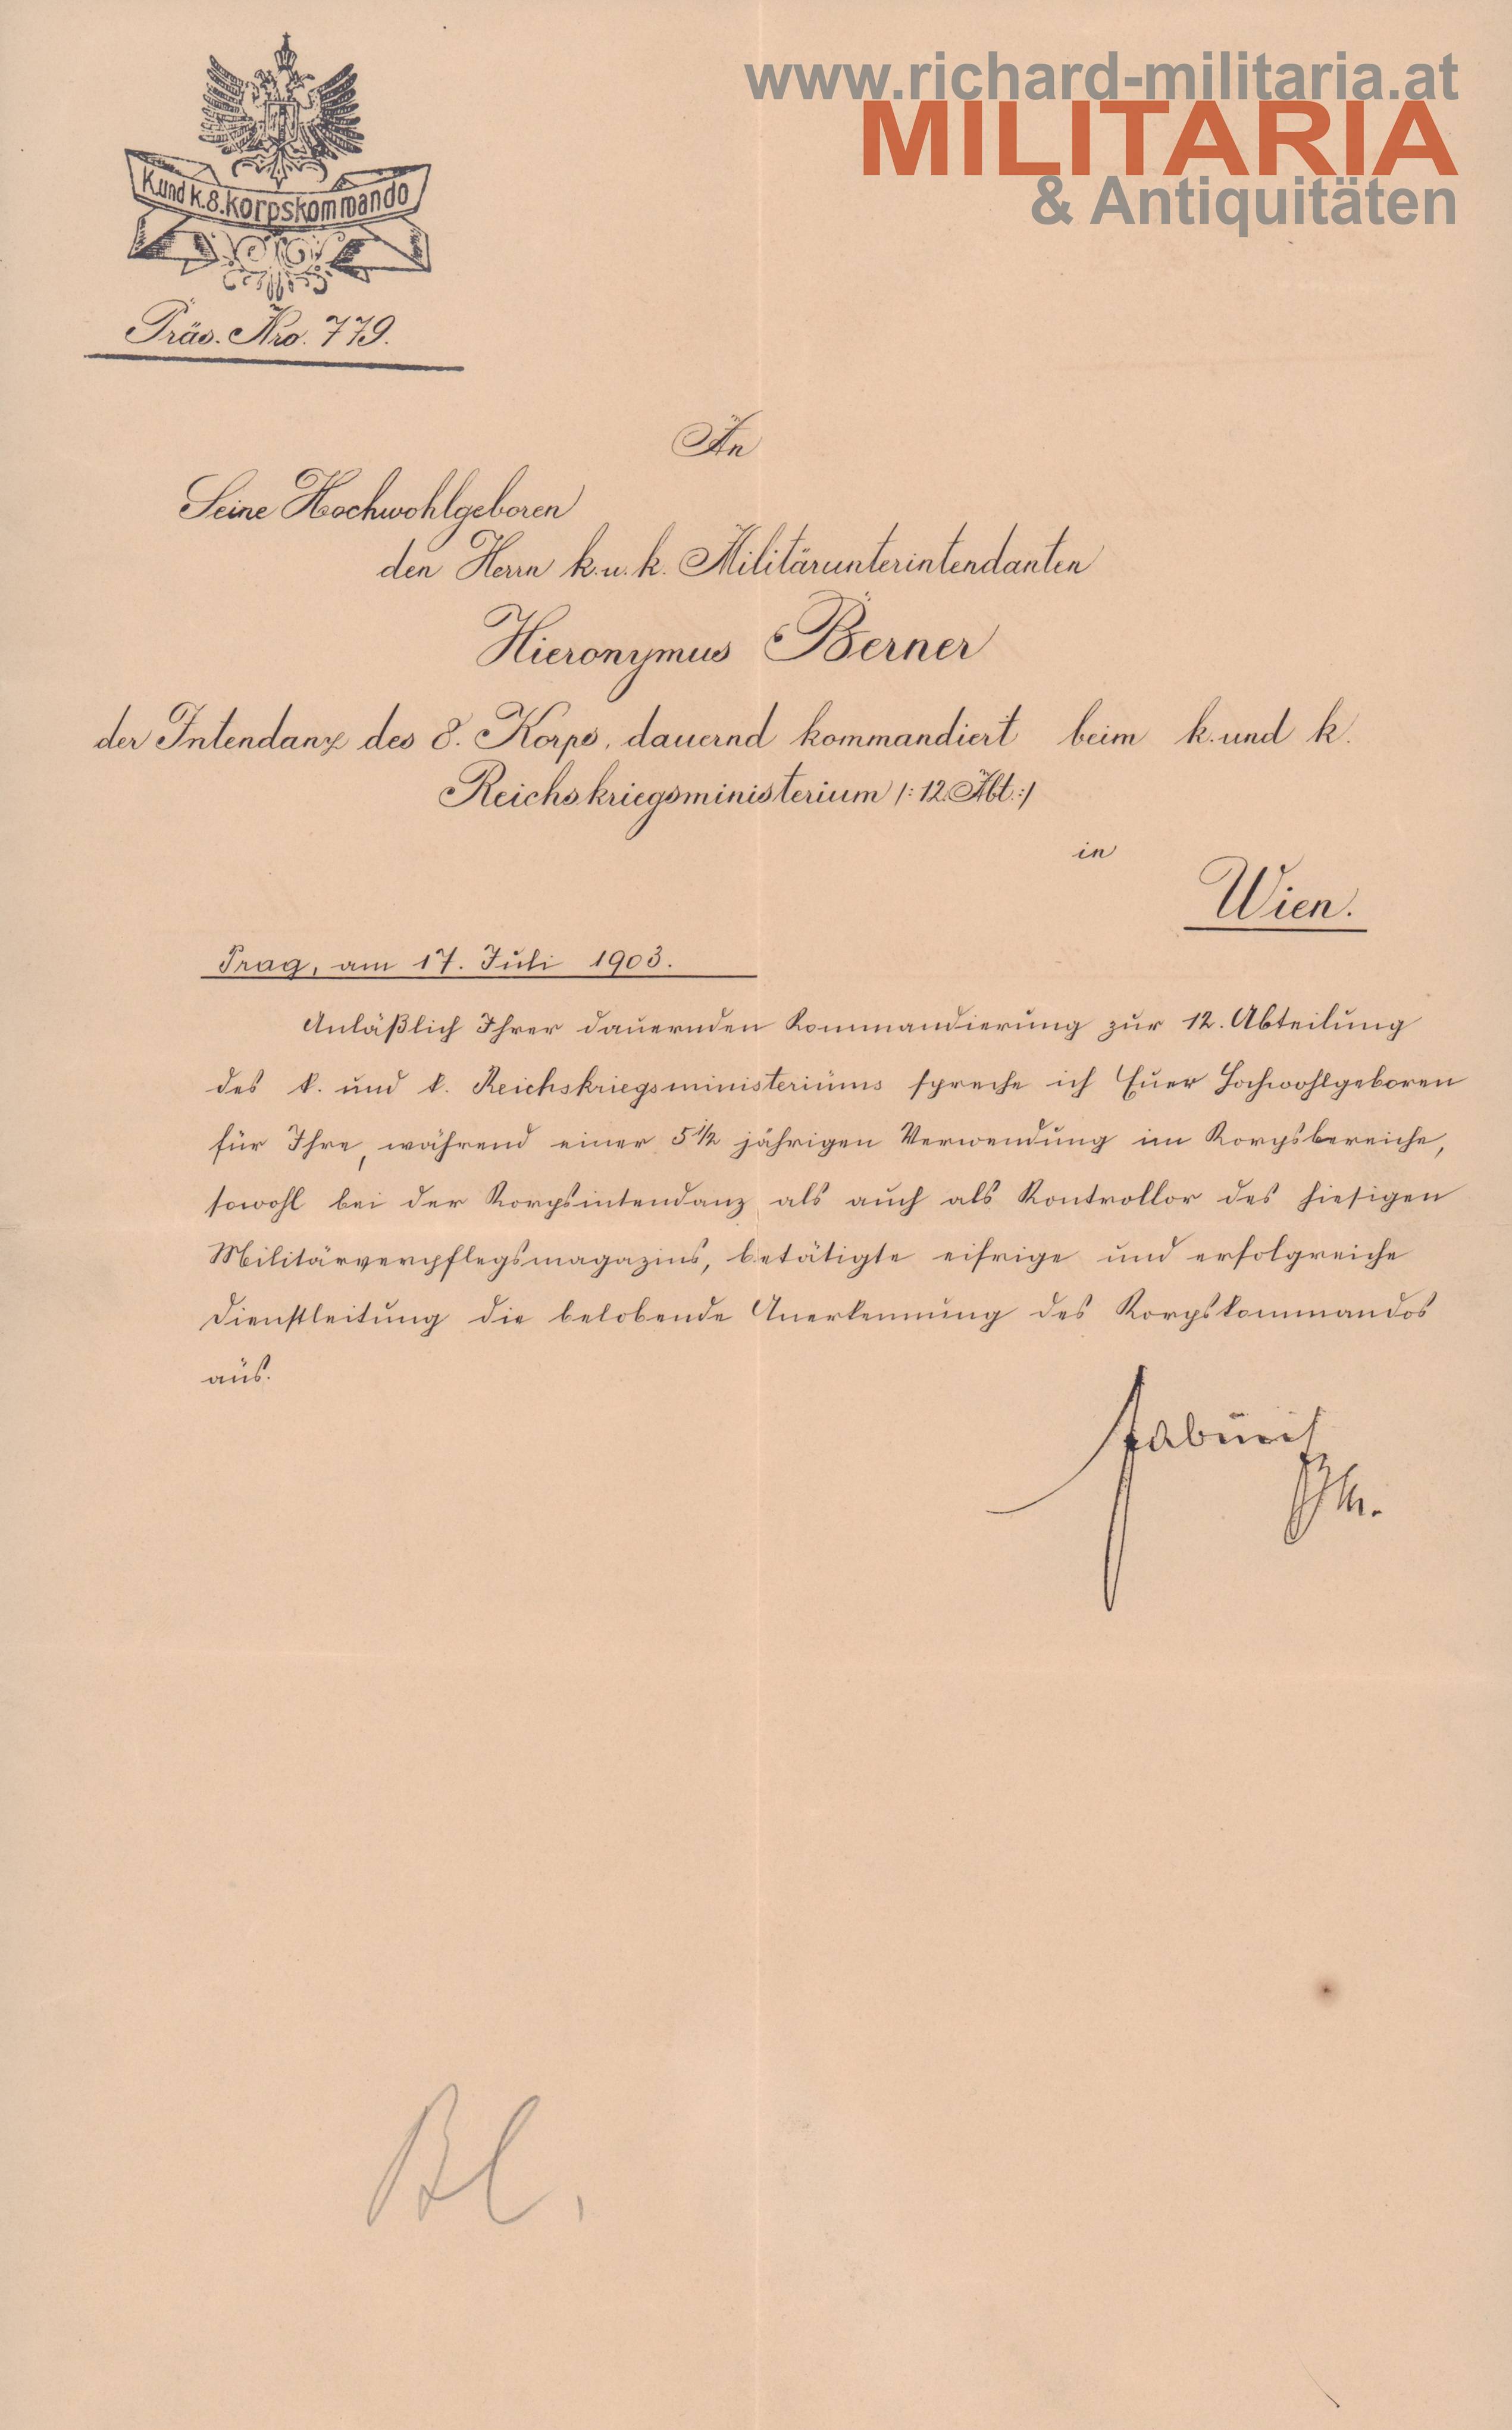 www.richard-militaria.at
MILITARIA
& Antiquitäten
K.und k.8.Korpskommando
Präs. Nro. 779.
An
Seine Hochwohlgeboren
den Herrn k.u.k. Militärunterintendanten
Hieronymus Berner
der Intendanz des 8. Korps, dauernd kommandiert beim k. und k.
Reichskriegsministerium /: 12. Abt. :/
in
Wien.
Prag, am 17. Juli 1903.
Anläßlich Ihrer dauernden Kommandierung zur 12. Abteilung
des k. und k. Reichskriegsministeriums spreche ich Euer Hochwohlgeboren
für Ihre, während einer 5 1/2 jährigen Verwendung im Korpsbereiche,
sowohl bei der Korpsintendanz als auch als Kontrollor des hiesigen
Militärverpflegsmagazins, betätigte eifrige und erfolgreiche
Dienstleitung die belobende Anerkennung des Korpskommandos
aus.